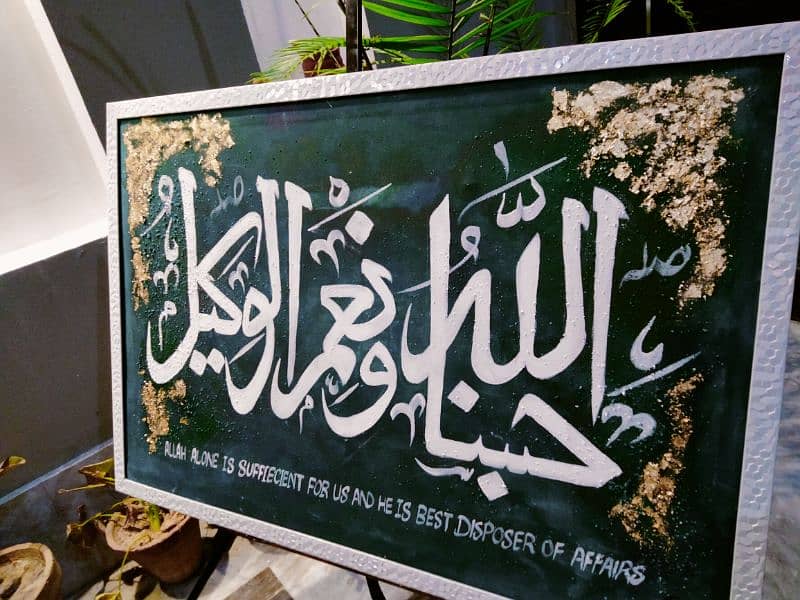 حسبنا الله ونعم الوكيل
ALLAH ALONE IS SUFFIECIENT FOR US AND HE IS BEST DISPOSER OF AFFAIRS